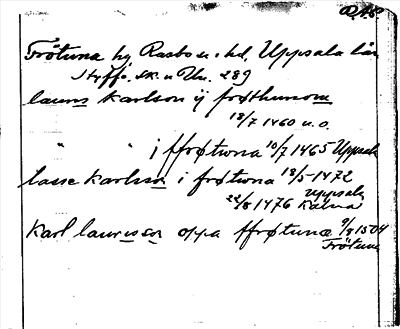 DAP
Frötuna by, Rasbo sn o. hd, Uppsala län
Styffe, Sk. u. Un. 289
lauris karlson ij frøthunom
18/7 1460 u.o.
" " j ffrøtwna 10/7 1465 Uppsala
lasse karlsson i frøtwna 18/5 1472
Uppsala
22/8 1476 Kalmar
Karl laurisson oppa ffrøtunæ 9/8 1504
Frötuna